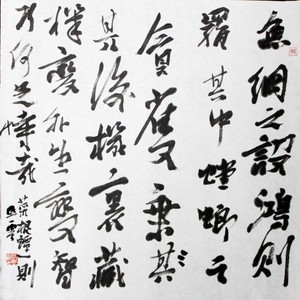 魚網之設鴻則
罹其中螳螂之
貪雀又乘其
其後機裏藏
機變外生變智
巧何足恃哉
菜根譚一則